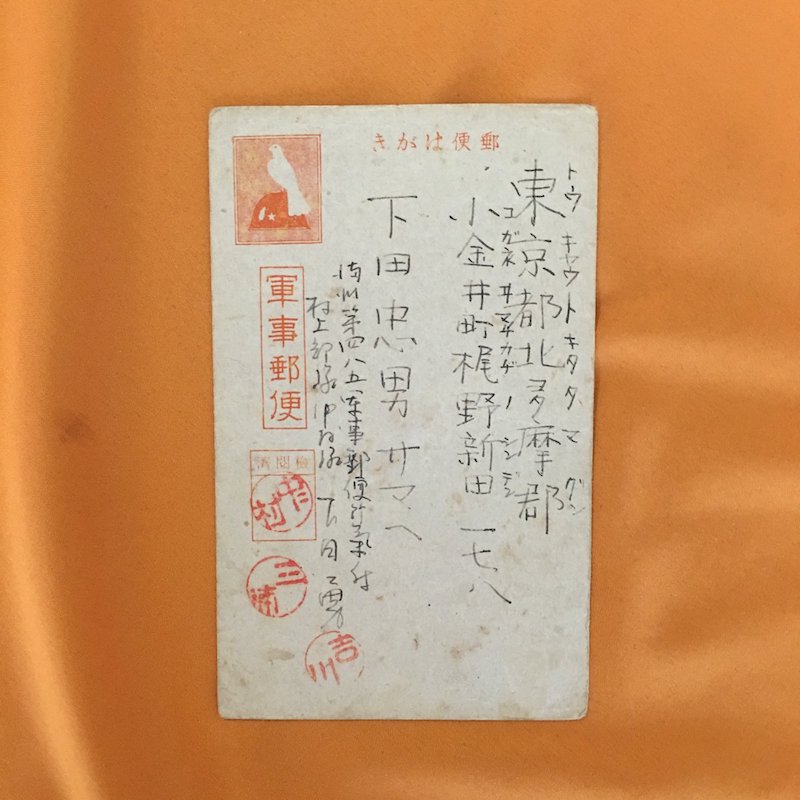 郵便はがき
トウキヤウトキタタマグン
東京都北多摩郡
コガネヰマチカヂノシンデン
小金井町梶野新田一七八
下田忠男サマヘ
満州第四八五軍事郵便所気付
村上部隊中村隊
軍事郵便
検閲済
三浦
吉川